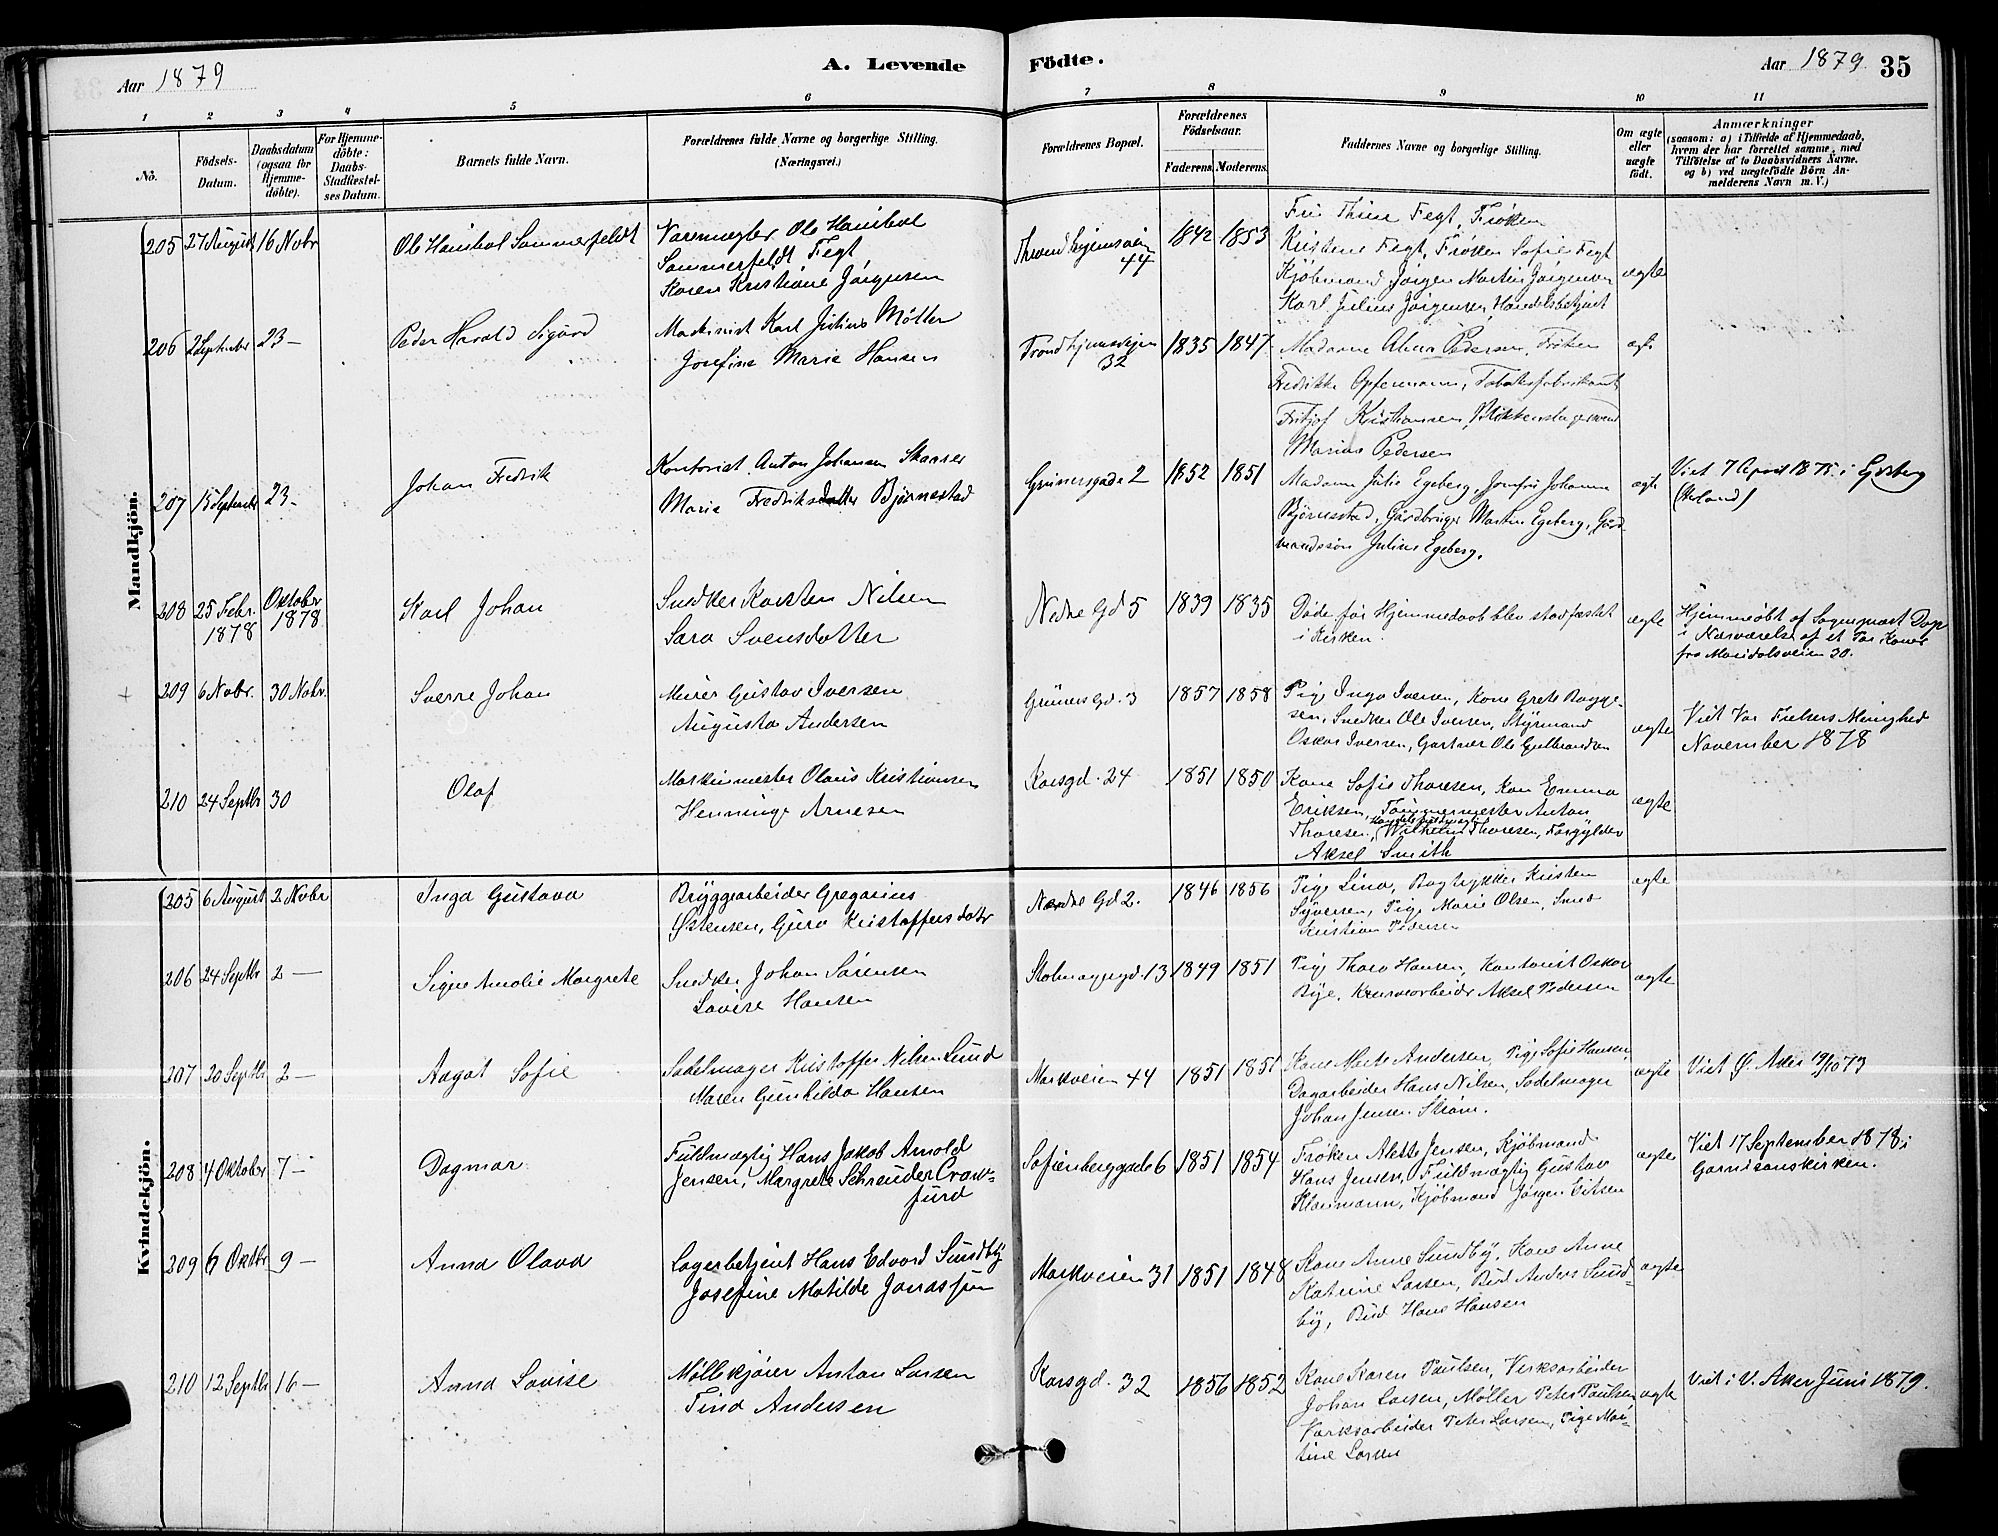 Aar 1879
A. Levende Fødte.
Aar 1879. 35
1 2 3 4 5 6 7 8 9 10 11
No.
Fødsels-Datum.
Daabsdatum (ogsaa for Hjemmedøbte).
For Hjemmedøbte: Daabs-Stadfæstelses Datum.
Barnets fulde Navn.
Forældrenes fulde Navne og borgerlige Stilling. (Næringsvei.)
Forældrenes Bopæl.
Forældrenes Fødselsaar.
Faderens. Moderens.
Faddernes Navne og borgerlige Stilling.
Om ægte eller uægte født.
Anmærkninger
(saasom: a) i Tilfælde af Hjemmedaab,
hvem der har forrettet samme, med
Tilføielse af to Daabsvidners Navne.
og b) ved uægtefødte Børn An-
melderens Navn m. V.)
Mandkjøn.
205 27 August 16 Novbr Ole Hanibal Sommerfeldt
Varemægler Ole Hanibal
Sommerfeldt Fegt
Karen Kristiane Jørgensen
Throndhjemsveien 44
1842 1853
Fru Thine Fegt, Frøken
Kristine Fegt, Frøken Sofie Fegt
Kjøbmand Jørgen Martin Jørgensen
Karl Julius Jørgensen, Handelsbetjent
ægte
206 2 Septembr 23 — Peder Harald Sigurd
Maskinist Karl Julius Møller
Josefine Marie Hansen
Trondhjemsvejen 32
1835 1847
Madame Pedersen, Frøken
Fredrikke Opfermann, Tobaksfabrikant
Fritjof Kristiansen, Blikkenslagersvend
Marius Pedersen
ægte
207 15 September 23 — Johan Fredrik
Kontorist Anton Johansen Skaarer
Marie Fredriksdatter Bjørnestad
Grünersgade 2
1852 1851
Madame Julie Egeberg, Jomfru Johanne
Bjørnestad, Gårdbruger Martin Egeberg, Gård-
mandssøn Julius Egeberg.
ægte
Viet 7 April 1875 i
208 25 Febr. 1878 Oktober 1878 Karl Johan
Snedker Karsten Nilsen
Sara Svensdatter
Nedre Gd 5
1839 1835
Døde før Hjemmedaab blev stadfæstet
i Kirken.
ægte
Hjemmedøbt af Sogneprest
i Nærværelse af et Par Koner
fra Maridalsveien 30.
209 6 Novbr. 30 Novbr. Sverre Johan
Murer Gustav Iversen
Augusta Andersen
Grüners Gd. 3
1857 1858
Pige Inga Iversen, Kone Grete Bagge-
sen, Snedker Ole Iversen, Styrmand
Oskar Iversen, Gartner Ole Gulbrandsen
ægte
Viet Vor Frelsers Menighed
November 1878
210 24 Septbr 30 Olaf
Maskinmester Olaus Kristiansen
Henninge Arnesen
Korsgd. 24
1851 1850
Kone Sofie Thoresen, Kone Emma
Eriksen, Tømmermester Anton
Thoresen, Wilhelm Thoresen, Forgylder
Aksel Smith
ægte
Kvindekjøn.
205 6 August 2 Novbr Inga Gustava
Bryggearbeider Gregarius
Østensen, Guro Kristoffersdatter
Nedre Gd 2.
1846 1856
Pige Lina, Bogtrykker Kristen
Syversen, Pige Marie Olsen, Smed
Kristian Pedersen
ægte
206 24 Septbr 2 — Signe Amalie Margrete
Snedker Johan Sørensen
Lovise Hansen
Stolmagergd. 13
1849 1851
Pige Thora Hansen, Kontorist Oskar
Bye, Aksel Pedersen
ægte
207 20 Septbr 2 — Aagot Sofie
Sadelmager Kristoffer Nilsen Lund
Maren Gunhilda Hansen
Markveien 44
1851 1851
Kone Marte Andersen, Pige Sofie Hansen,
Dagarbeider Hans Nilsen, Sadelmager
Johan Jensen Strøm.
ægte
Viet Ø. Aker 19/10 73
208 4 Oktober 7 — Dagmar
Fuldmægtig Hans Jakob Arnold
Jensen, Margrete Schreuder Craw-
furd
Sofienberggade 6
1851 1854
Frøken Alette Jensen, Kjøbmand
Hans Jensen, Fuldmægtig Gustav
Klaumann, Kjøbmand Jørgen Eitsen
ægte
Viet 17 September 1878 i
Garnisonskirken.
209 6 Oktbr 9 — Anna Olava
Lagerbetjent Hans Edvard Sundby
Josefine Matilde Jonassen
Markveien 31
1851 1848
Kone Anne Sundby, Kone Anne
Katrine Larsen, Bud Anders Sund-
by, Bud Hans Hansen
ægte
210 12 Septbr 16 — Anna Lovise
Møllekjører Anton Larsen
Tina Andersen
Korsgd. 32
1856 1852
Kone Karen Paulsen, Verksarbeider
Johan Larsen, Møller Peter Paulsen,
Værksarbeider Peter Larsen, Pige Mar-
tine Larsen
ægte
Viet i V. Aker Juni 1879.